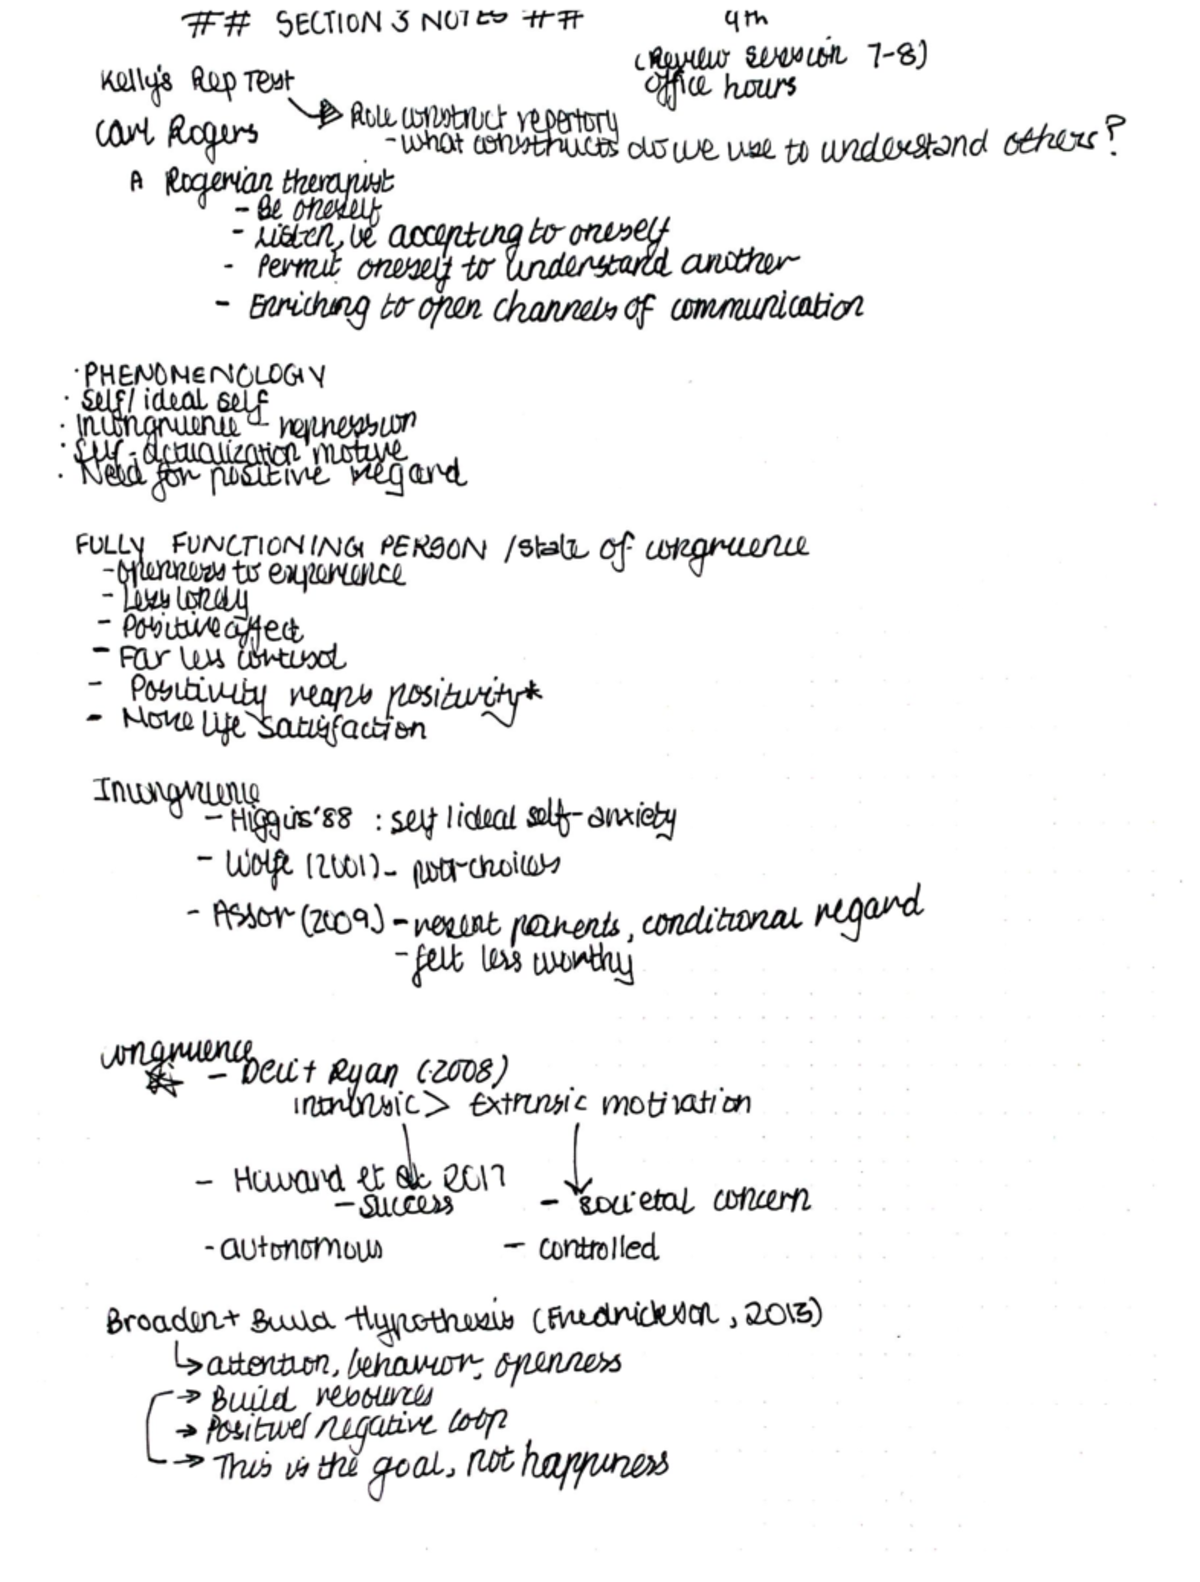 ## SECTION 3 NOTES ##
9th
(Review session 7-8)
office hours
Kelly's Rep Test
Role construct repertory
- what constructs do we use to understand others?
Carl Rogers
A Rogerian therapist
- Be oneself
- Listen, be accepting to oneself
- Permit oneself to understand another
- Enriching to open channels of communication
· PHENOMENOLOGY
· Self/ideal self
· Incongruence - repression
· Self-actualization motive
· Need for positive regard
FULLY FUNCTIONING PERSON /state of congruence
- openness to experience
- Less lonely
- Positive affect
- Far less cortisol
- Positivity reaps positivity*
- More life satisfaction
Incongruence
- Higgins '88 : self/ideal self-anxiety
- Wolfe (2001) - poor choices
- Assor (2009) - resent parents, conditional regard
- felt less worthy
congruence
- Deci + Ryan (2008)
intrinsic > Extrinsic motivation
- Howard et al. 2017
- success - societal concern
- autonomous - controlled
Broaden + Build Hypothesis (Fredrickson, 2013)
↳ attention, behavior, openness
→ Build resources
→ Positive/negative loop
→ This is the goal, not happiness